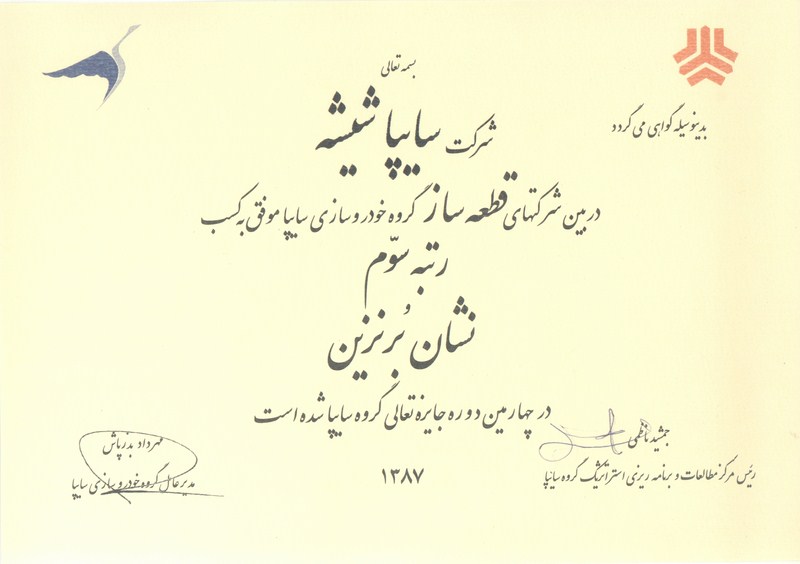 بسمه تعالی
بدینوسیله گواهی می گردد
شرکت سایپا شیشه
در بین شرکتهای قطعه ساز گروه خودروسازی سایپا موفق به کسب
رتبه سوّم
و
نشان برنزین
در چهارمین دوره جایزه تعالی گروه سایپا شده است
جمشید ناظمی
رئیس مرکز مطالعات و برنامه ریزی استراتژیک گروه سایپا
۱۳۸۷
مهرداد بذرپاش
مدیرعامل گروه خودروسازی سایپا